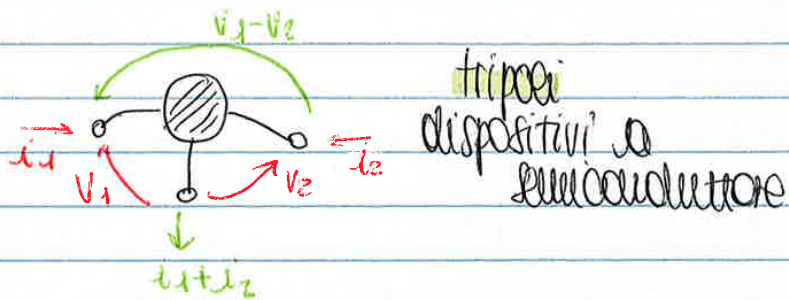 V1-V2
i1
V1
V2
i2
i1+i2
tripoli
dispositivi a
semiconduttore